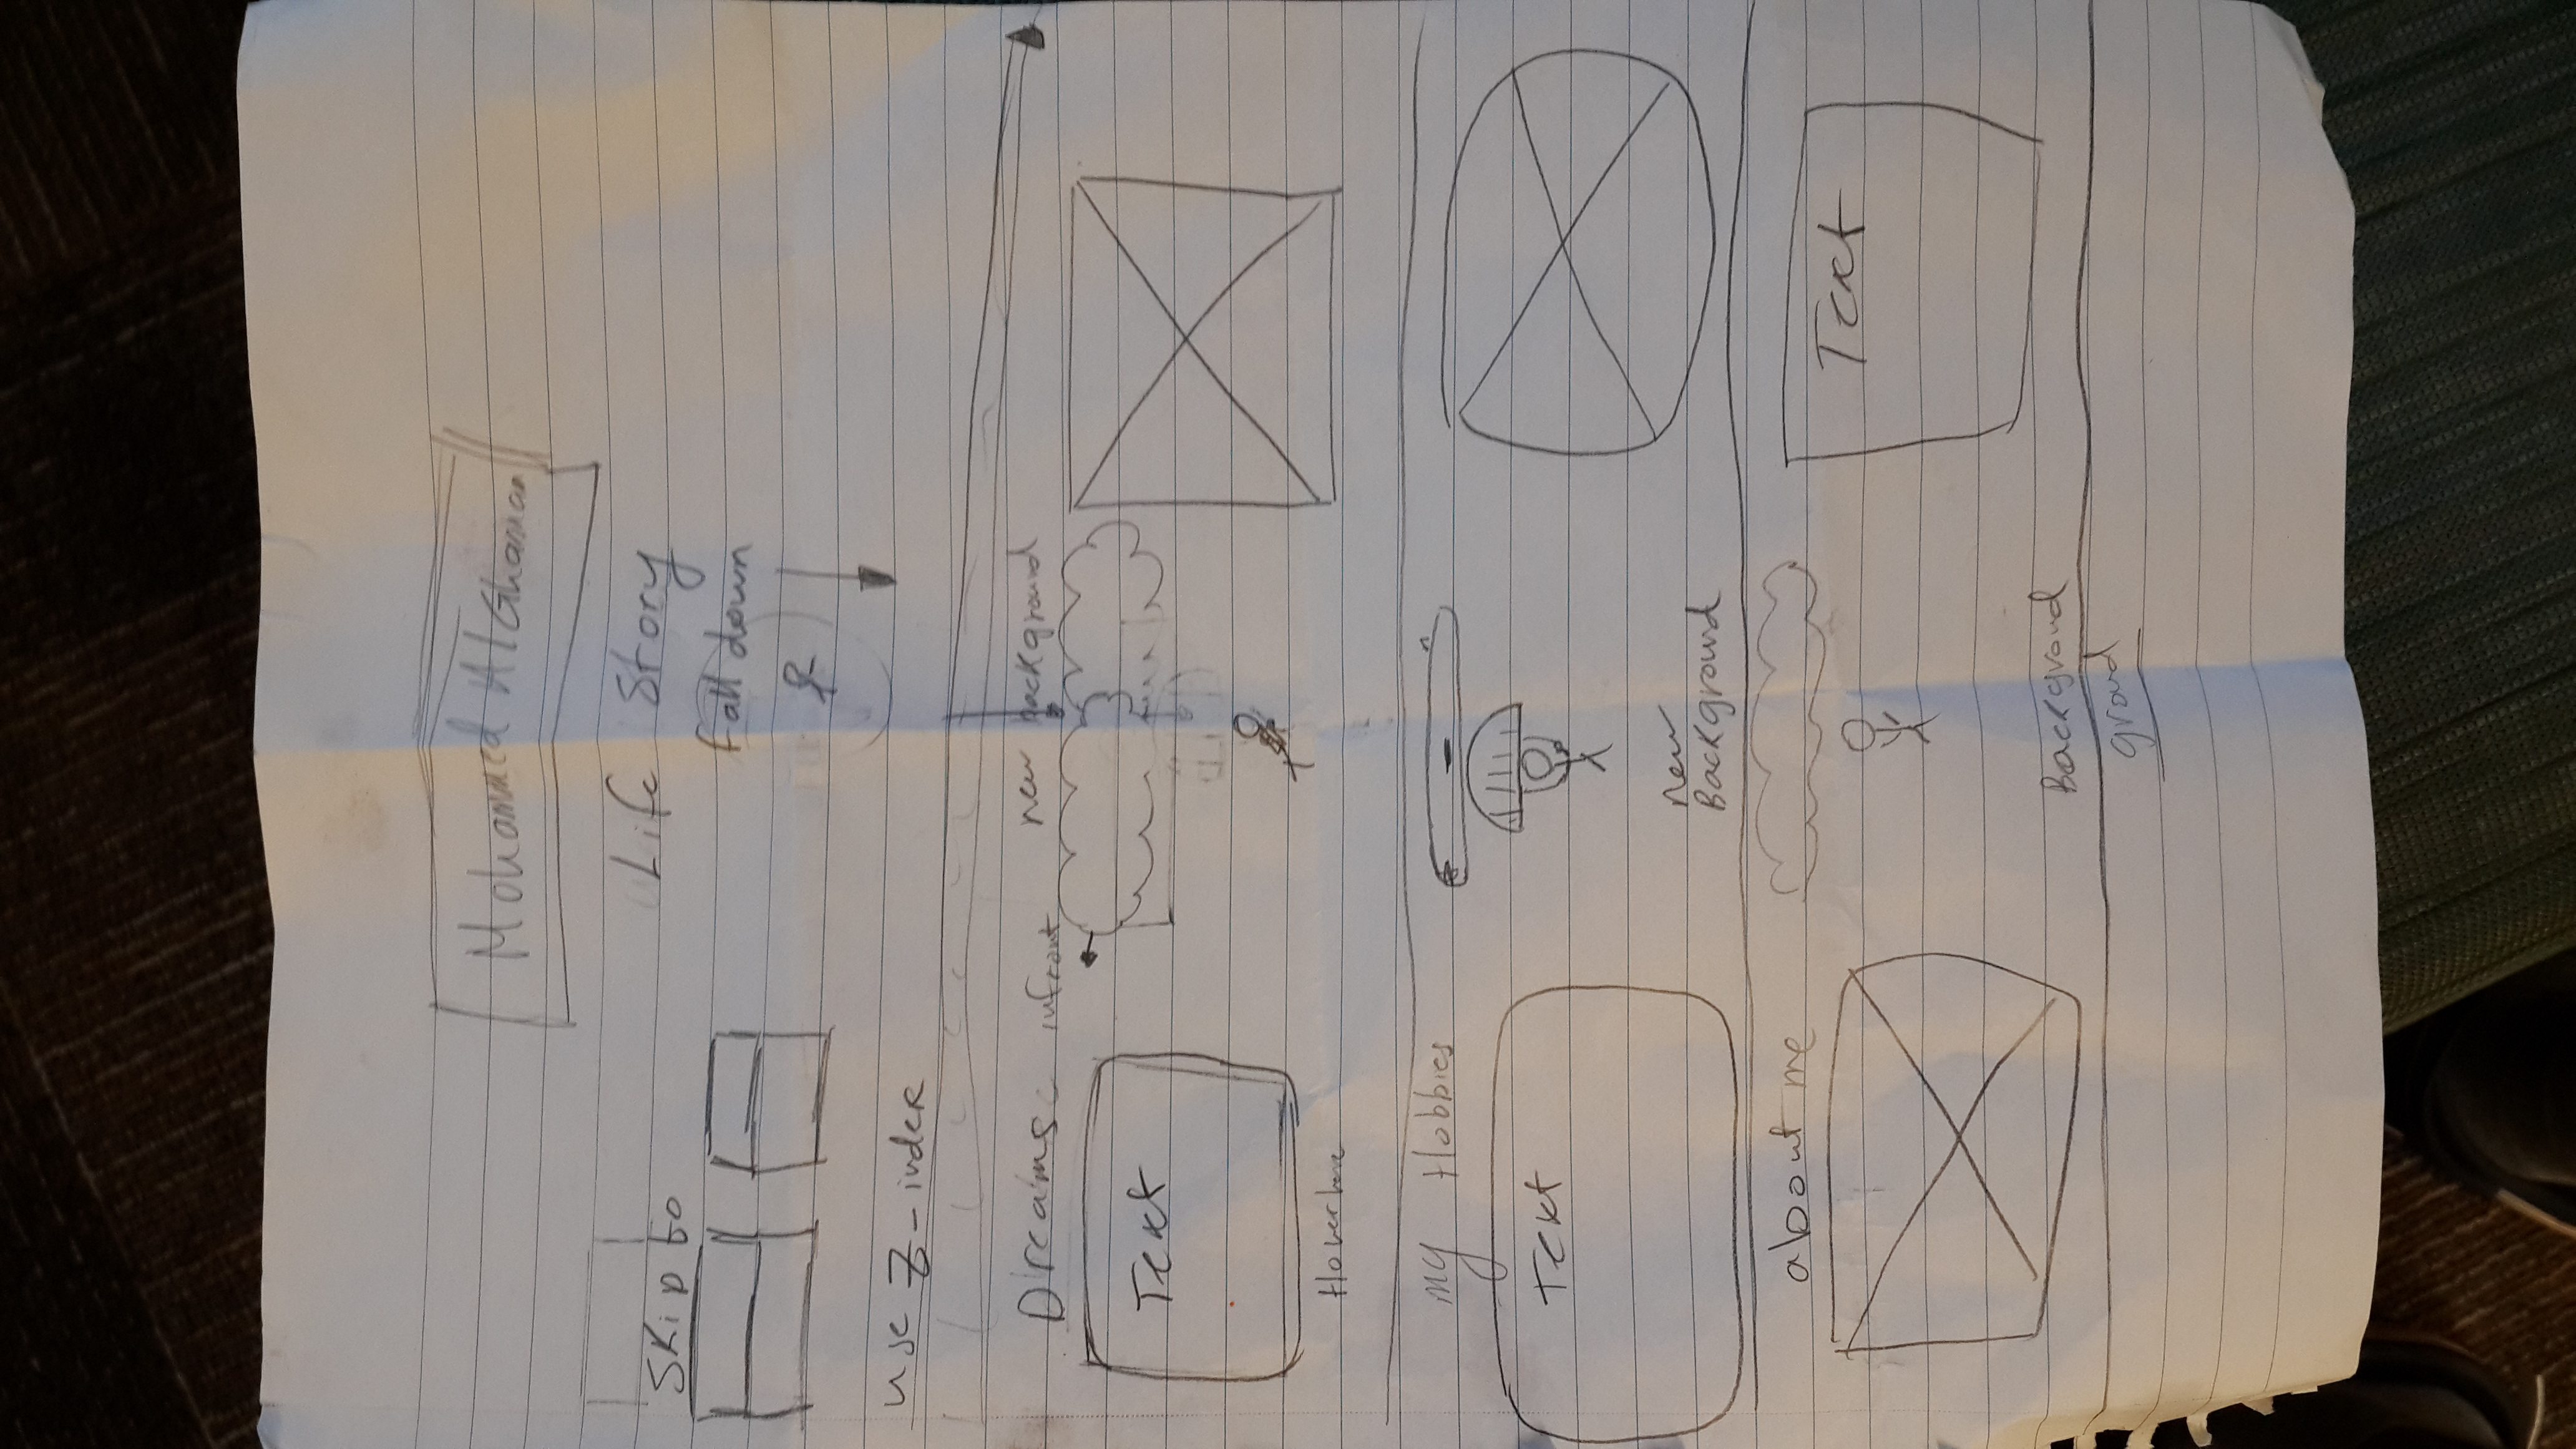 Mohammed AlGhaman
Life Story
Skip to
fall down
use Z-index
Dreams
infront
new background
Text
Hover here
my Hobbies
Text
new
Background
about me
Text
Background
ground